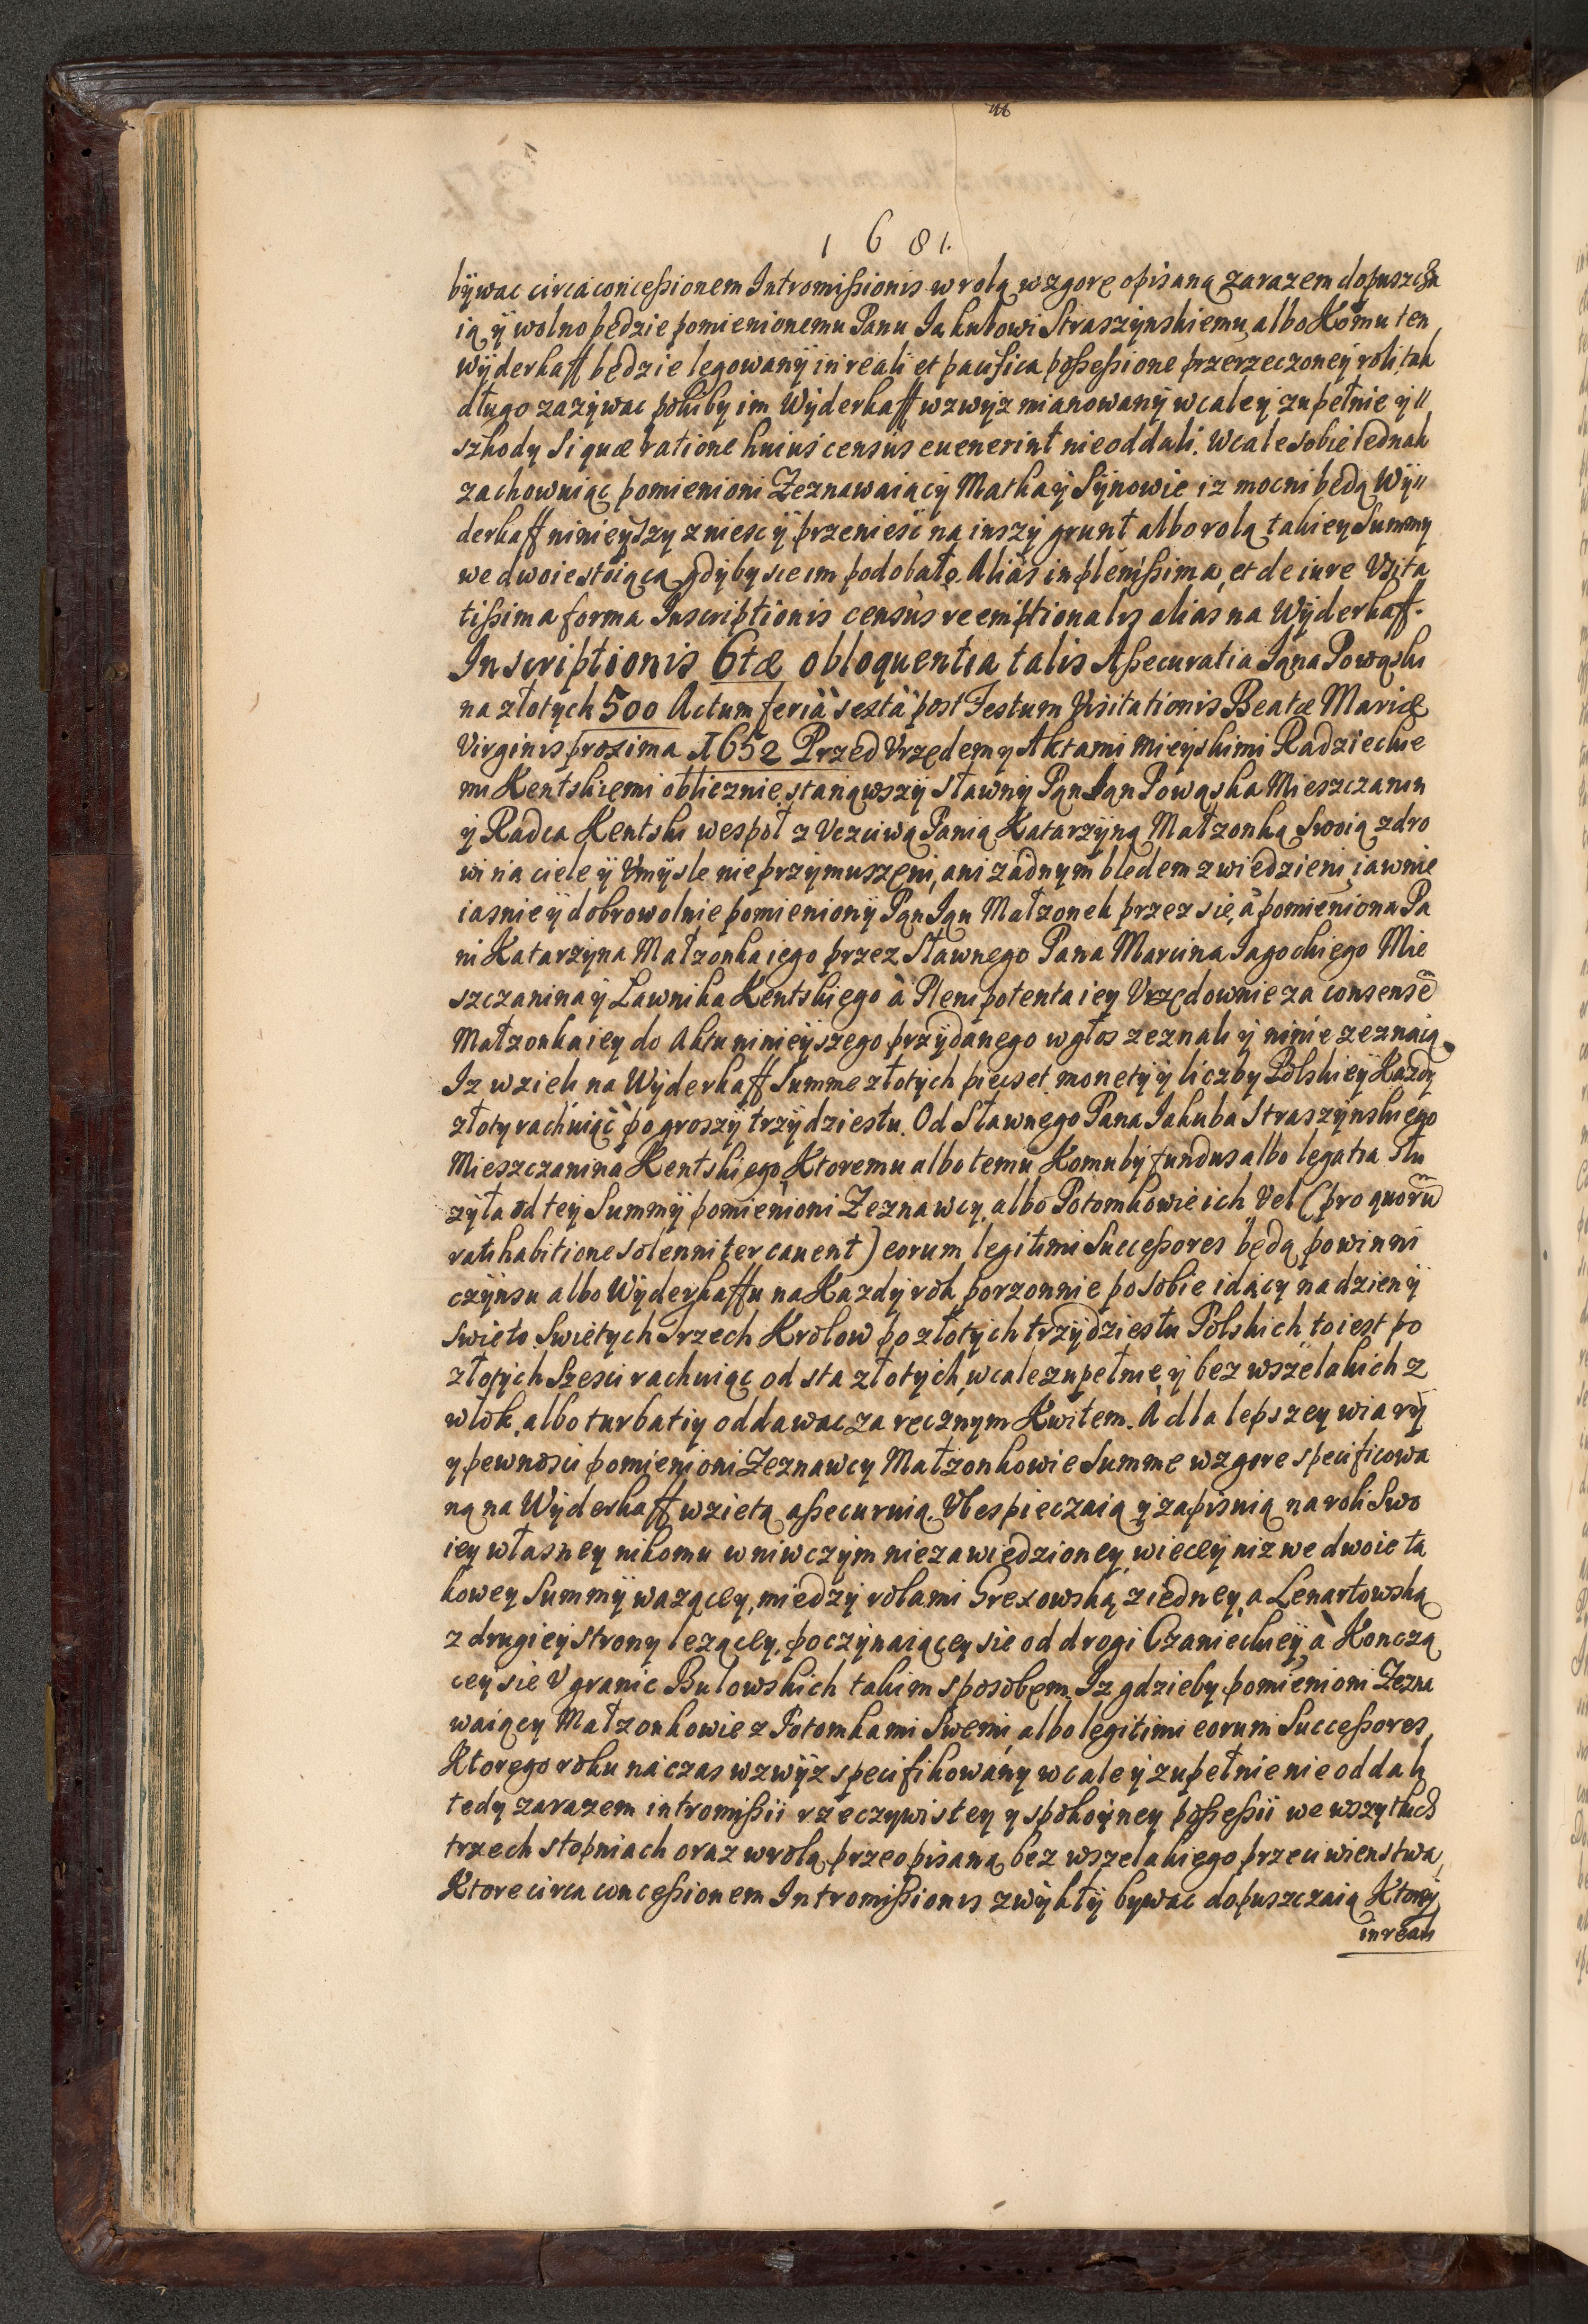 1681.
bÿwac circa concessionem Intromissionis w rolą wzgorę opisaną zarazem dopuszcza
ią ÿ wolno będzie pomienionemu Panu Iakubowi Straszÿnskiemu, albo Komu ten
wÿderkaff będzie legowanÿ in reali et pacifica possessione przerzeczoneÿ roli, tak
długo zazÿwac pokiby im Wÿderkaff wzwÿz mianowanÿ wcale ÿ zupełnie ÿ〃
szkody si quæ ratione huius census euenerint nieoddali. Wcale sobie iednak
zachowuiąc pomienioni Zeznawaiącÿ Matka ÿ Sÿnowie iz mocni będą Wÿ〃
derkaff ninieÿszy zniesc ÿ przeniesc na inszÿ grunt albo rolą takieÿ Summy
we dwoie stoiącą gdÿby sie im podobało. Alias in plenissima, et de iure Vsita
tissima forma Inscriptionis censùs reemptionalis alias na Wÿderkaff.
Inscriptionis 6tæ obloquentia talis Assecuratia Iana Powąski
na złotych 500 Actum ferià sextà post Festum Visitationis Beatæ Mariæ
Virginis proxima 1652 Przed Vrzędem y Aktami Mieÿskimi Radziechie
mi Kentskiemi oblicznie stanąwszÿ sławnÿ Pan Ian Powąska Mieszczanin
ÿ Radca Kentski wespoł z Vczciwą Panią Katarzÿną Małzonką Swoią zdro
wi na ciele ÿ Vmÿsle nieprzÿmuszeni, ani żadnym bledem zwiedzieni, iawnie
iasnie ÿ dobrowolnie pomienionÿ Pan Ian Małzonek przez się, à pomieniona Pa
ni Katarzÿna Małzonka iego przez Sławnego Pana Marcina Iagockiego Mie
szczanina ÿ Ławnika Kentskiego à Plenipotenta iey Vrzędownie za consensē
Małzonka iey do Aktu ninieÿszego przÿdanego w głos zeznali ÿ ninie zeznaią.
Iz wzieli na Wÿderkaff Summe złotych piecset monetÿ ÿ liczby Polskieÿ Kazdy
złoty rachuiąc po groszÿ trzÿdziestu. Od Sławnego Pana Iakuba Straszÿnskiego
Mieszczanina Kentskiego, Ktoremu albo temu Komuby fundus albo legatia słu
zyła od tey Summÿ pomienioni Zeznawcy, albo Potomkowie ich Vel (pro quorū
ratihabitione solenniter cauent) eorum legitimi Successores będą powinni
czÿnsu albo Wÿderkaffu na Kazdÿ rok porzonnie po sobie idący na dzien ÿ
swieto Swietych Trzech Krolow po złotych trzÿdziestu Polskich to iest po
złotych Szesci rachuiąc od sta złotych, wcale zupełnie ÿ bez wszelakich z
włok, albo turbatiy oddawac za ręcznym Kwitem. A dla lepszey wiarÿ
y pewnosci pomienioni Zeznawcy Małzonkowie Summe wzgore specificowa
ną na Wÿderkaff wzietą assecuruią. Vbespieczaią ÿ zapisuią na roli Swo
iey własney nikomu w niwczÿm niezawiedzioney wieceÿ niz we dwoie ta
kowey Summÿ wazącey, miedzÿ rolami Grexowską z iedney, a Lenartowską
z drugieÿ strony lezącey, poczÿnaiącey sie od drogi Czanieckieÿ, à Konczą
cey sie V granic Bulowskich takim sposobem. Iz gdzieby pomienioni Zezna
waiący Małzonkowie z Potomkami Swemi, albo legitimi eorum Successores,
Ktorego roku na czas wzwÿz specifikowany wcale ÿ zupełnie nie oddali
tedy zarazem intromissii rzeczywistey y spokoÿney possessii we wszytkich
trzech stopniach oraz w rolą przeopisaną bez wszelakiego przeciwienstwa,
Ktore circa concessionem Intromissionis zwÿkłÿ bywac dopuszczaią Ktorÿ
in reali